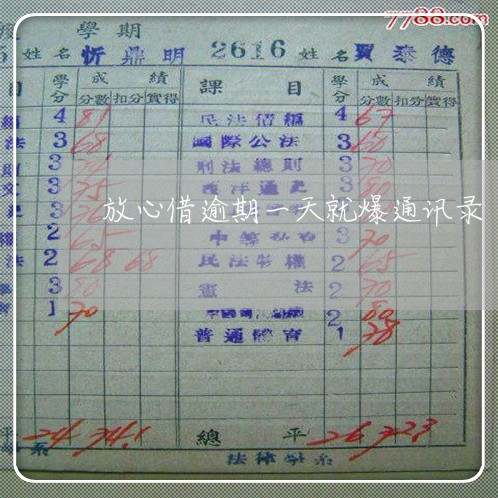 7788.com
學期
5 姓名 忻鼎明 2616 姓名 賈泰德
目 學分 成績 分數 扣分 實得 課目 學分 成績 分數 扣分 實得
4 81 民法債編 4 67
法 3 68 國際公法 3 60
3 刑法總則 3 70
3 75 西洋通史 3 80
放心借逾期一天就爆通讯录
權 2 65 3 70
法 2 68 68 民法物權 2 65
3 80 憲法 2 70
育 1 70 2 80
普通體育 1 78
平 24 74.1 總平 26 72.3
系 法律學系